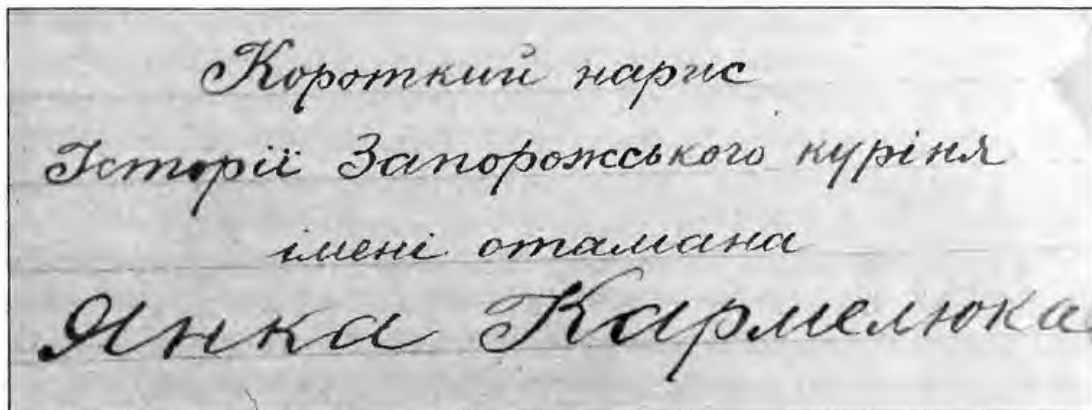 Короткий нарис
Історії Запорожського куріня
імені отамана
Янка Кармелюка